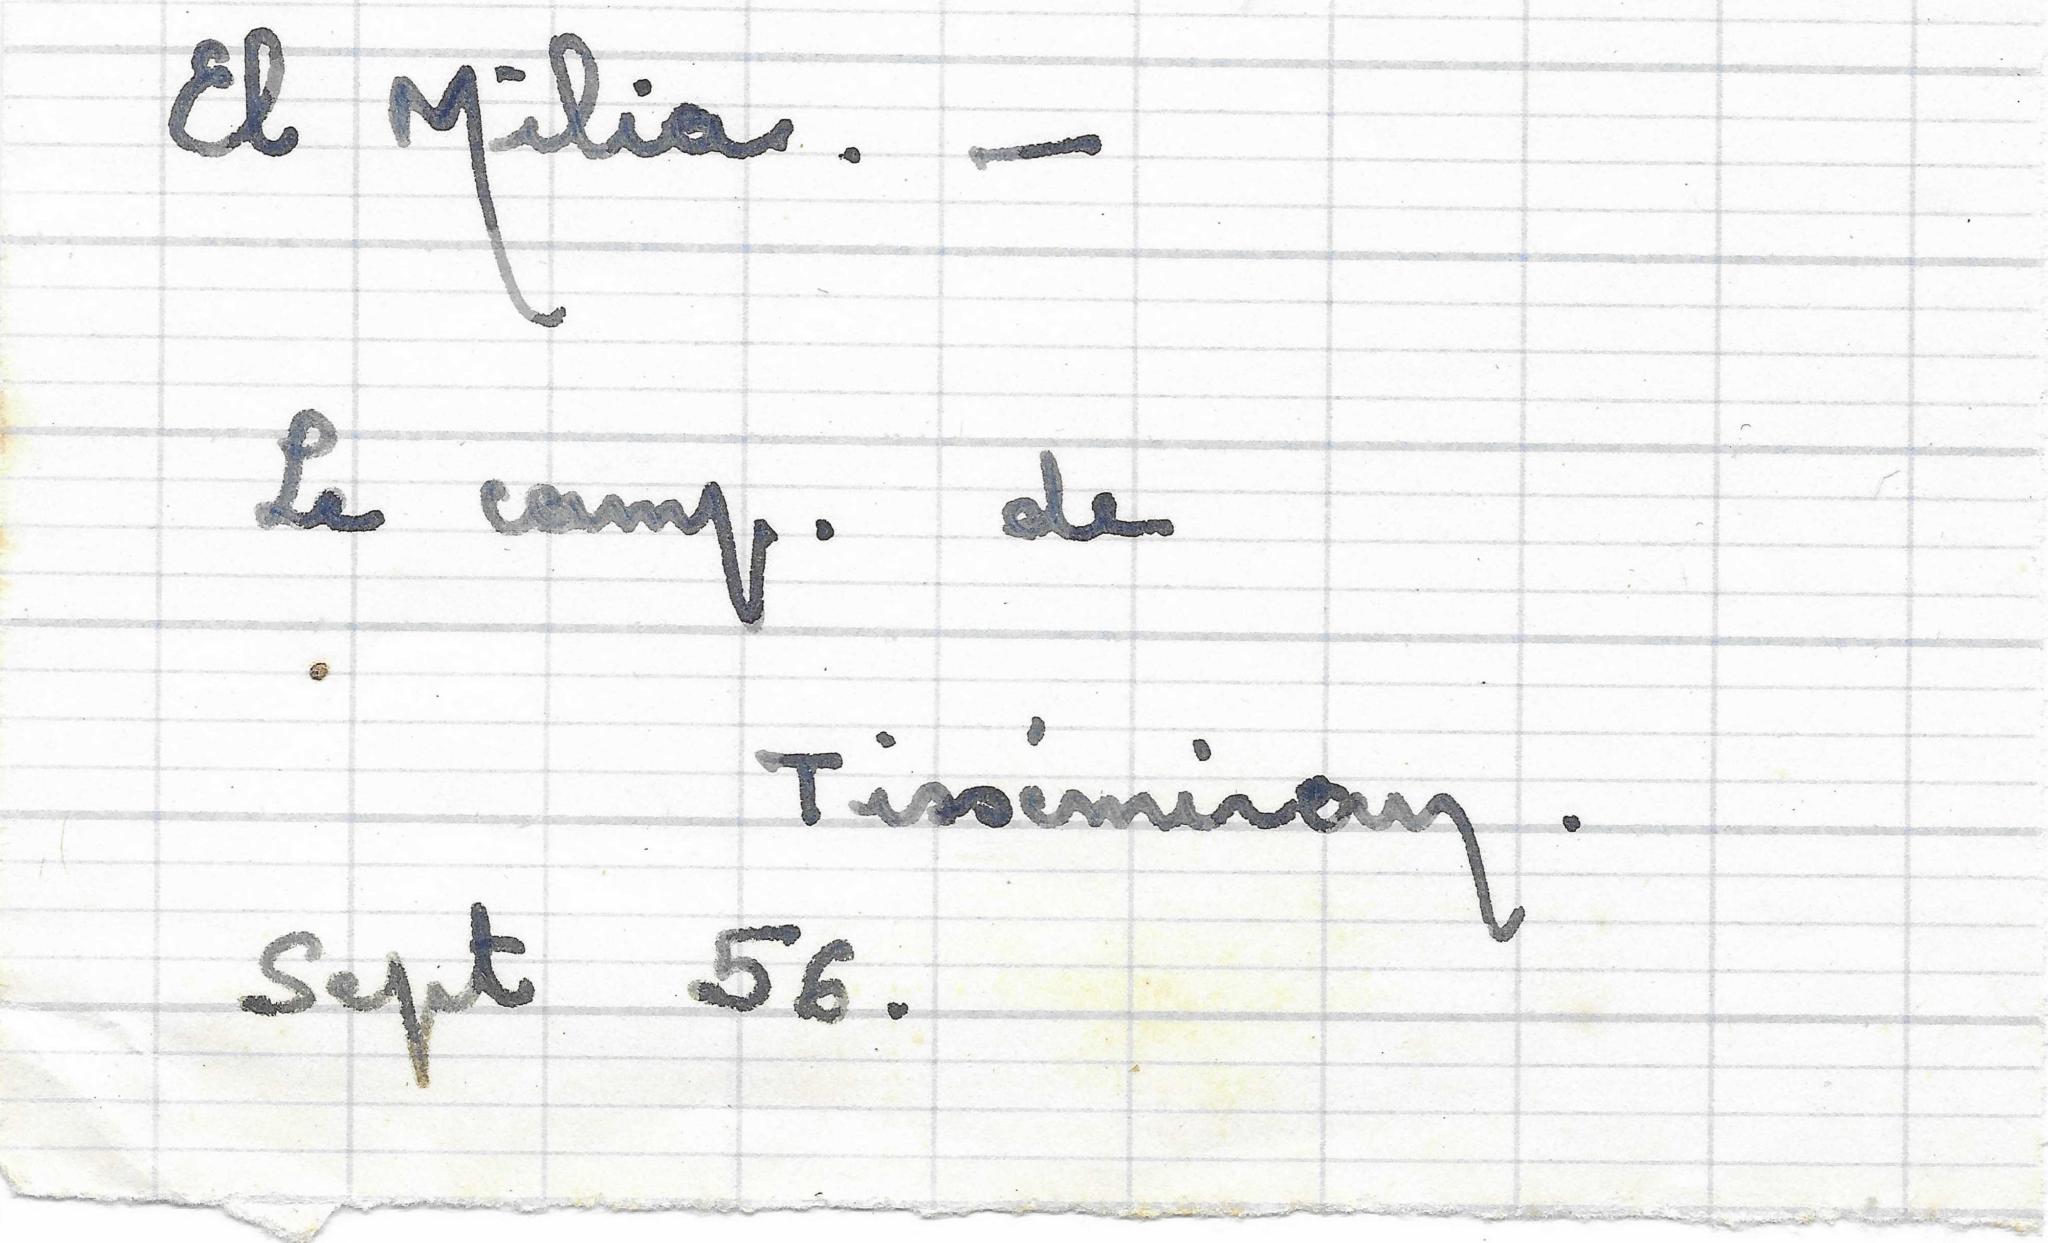 El Milia. —
Le camp. de
Tissémiran.
Sept 56.